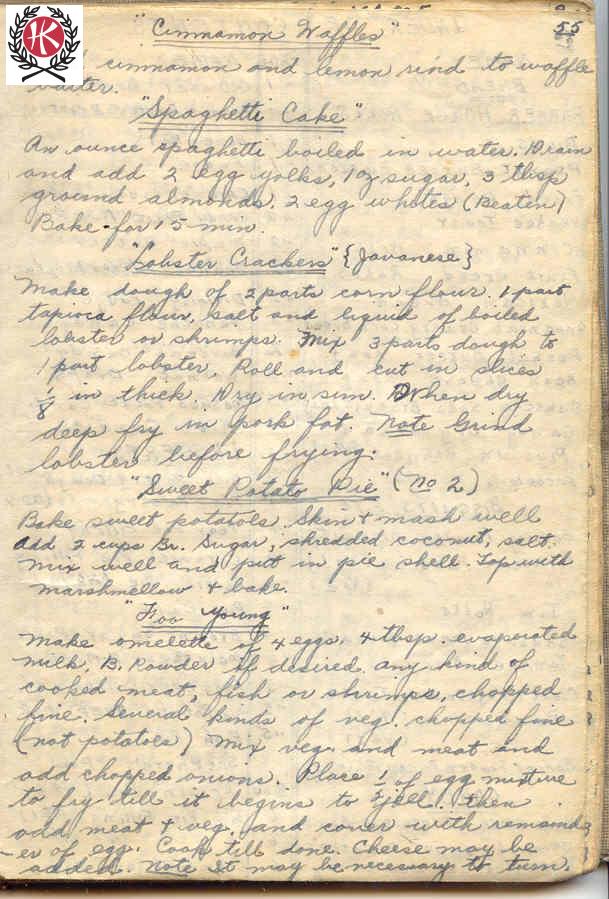 55
"Cinnamon Waffles"
cinnamon and lemon rind to waffle
batter.
"Spaghetti Cake"
An ounce spaghetti boiled in water. Drain
and add 2 egg yolks, 1 oz sugar, 3 tbsp
ground almonds, 2 egg whites (Beaten)
Bake for 15 min.
"Lobster Crackers" {Javanese}
Make dough of 2 parts corn flour, 1 part
tapioca flour, salt and liquid of boiled
lobster or shrimps. Mix 3 parts dough to
1 part lobster, Roll and cut in slices
1/8 in thick. Dry in sun. When dry
deep fry in pork fat. Note Grind
lobster before frying.
"Sweet Potato Pie" (No 2)
Bake sweet potatoes. Skin + mash well
add 2 cups Br. Sugar, shredded coconut, salt.
Mix well and put in pie shell. Top with
marshmellow + bake.
"Foo Young"
Make omelette of 4 eggs, 4 tbsp. evaporated
milk, B. Powder if desired. any kind of
cooked meat, fish or shrimps, chopped
fine. Several kinds of veg. chopped fine
(not potatoes) Mix veg. and meat and
add chopped onions. Place 1/2 of egg mixture
to fry till it begins to jell. then
add meat + veg. and cover with remaind
-er of egg. Cook till done. Cheese may be
added. Note It may be necessary to turn.